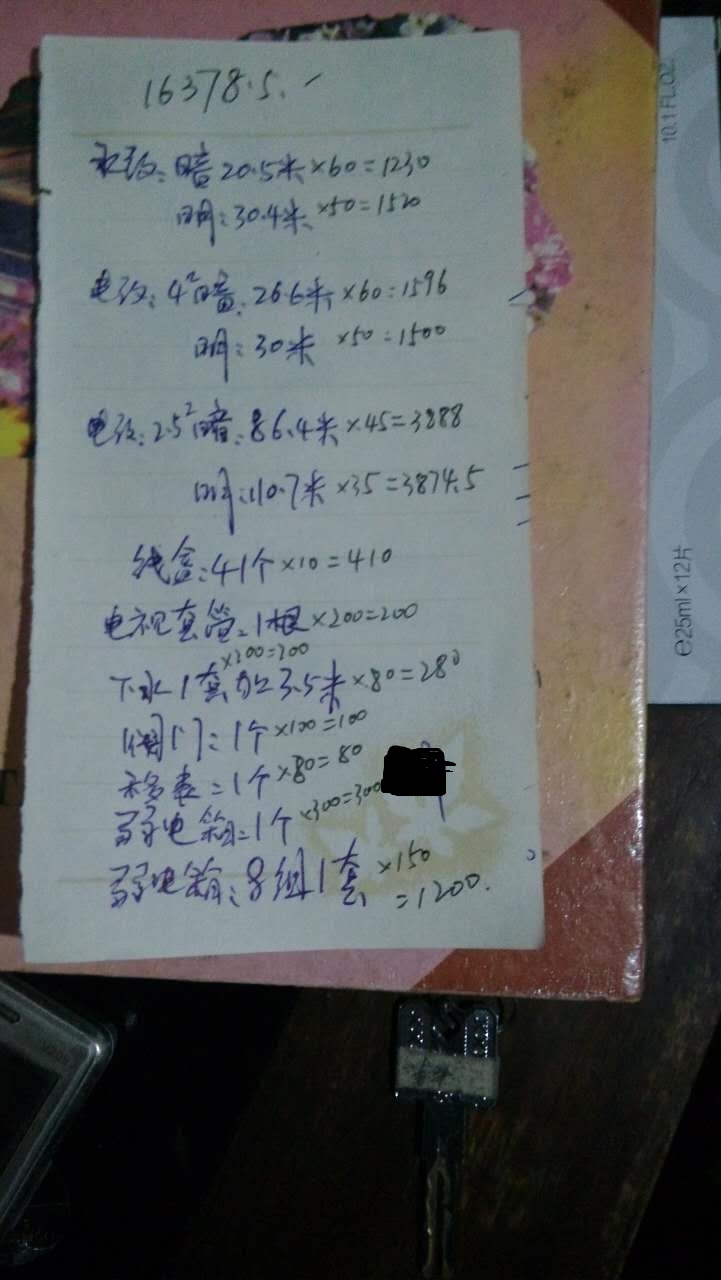 16378.5.
水改: 暗 20.5米 ×60=1230
明: 30.4米 ×50=1520
电改: 4² 暗: 26.6米 ×60=1596
明: 30米 ×50=1500
电改: 2.5² 暗: 86.4米 ×45=3888
明: 110.7米 ×35=3874.5
线盒: 41个 ×10=410
电视套管: 1根 ×200=200
×200=200
下水1套加3.5米 ×80=280
阀门: 1个 ×100=100
移表: 1个 ×80=80
弱电箱: 1个 ×300=300
弱电箱: 8组1套 ×150
=1200.
10.1 FL.OZ
℮25ml×12片